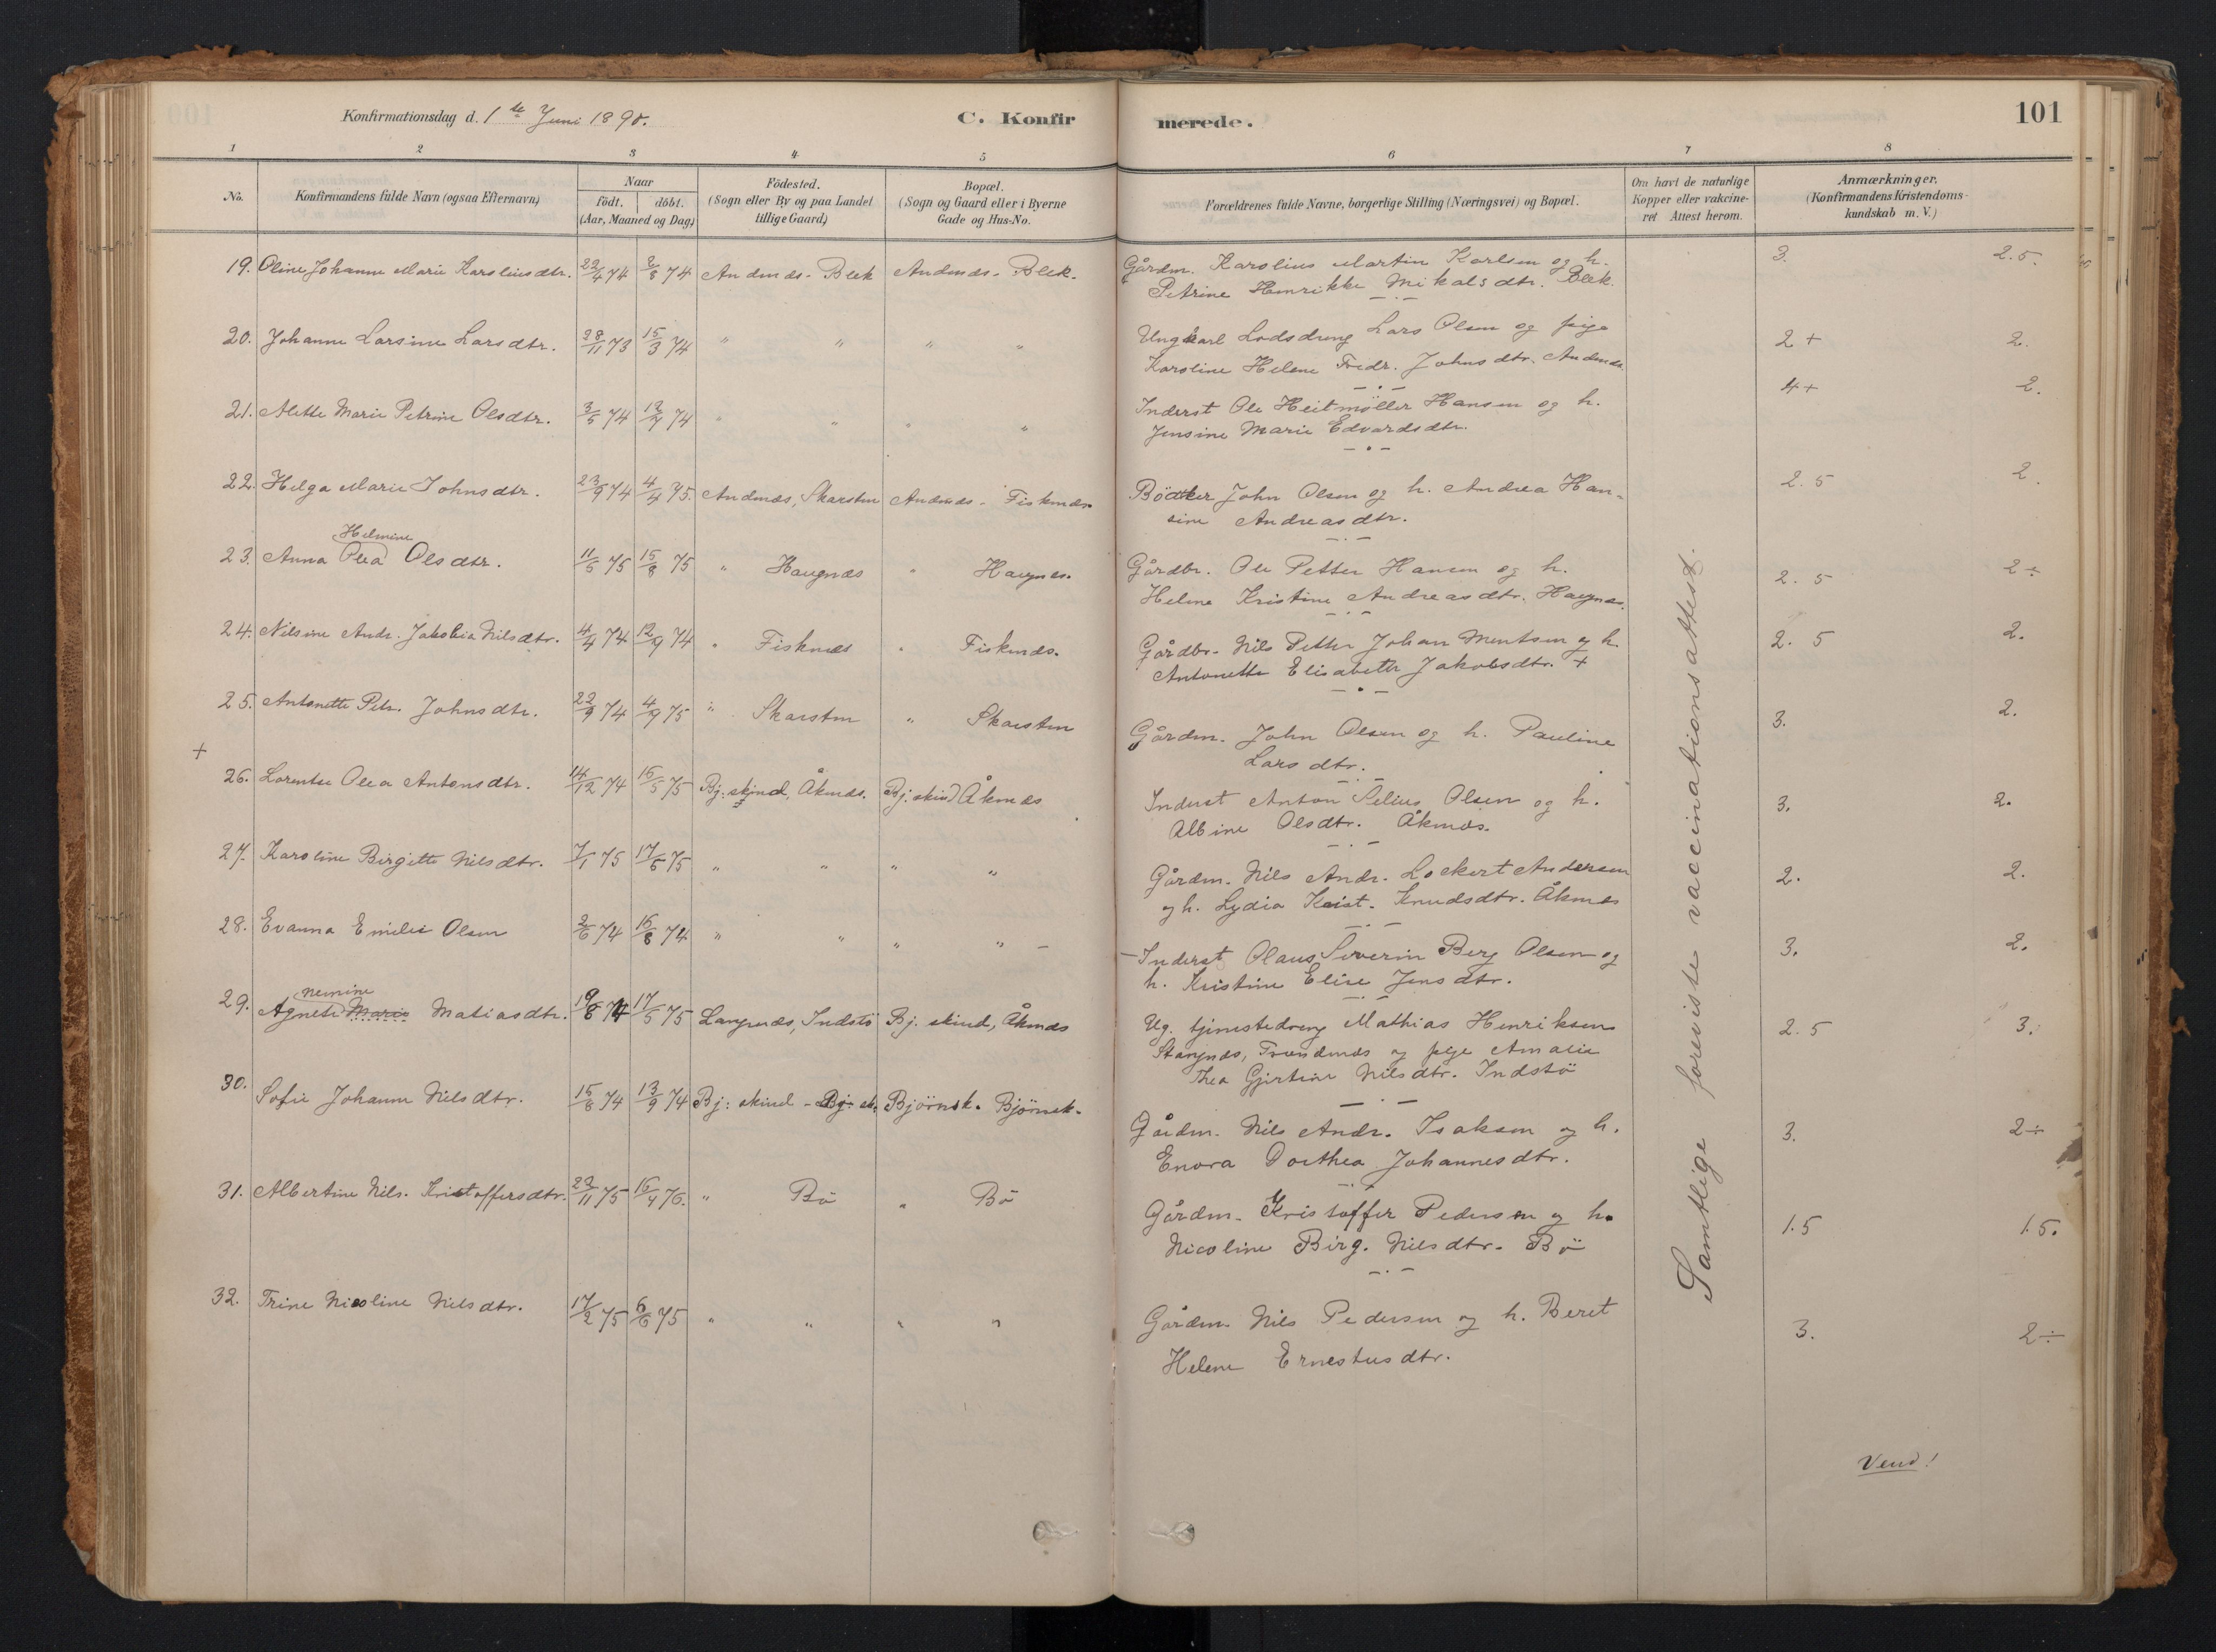 Konfirmationsdag d. 1ste Juni 1890.
C. Konfirmerede.
101
1 2 3 4 5 6 7 8
No.
Konfirmandens fulde Navn (ogsaa Efternavn)
Naar
födt. döbt.
(Aar, Maaned og Dag)
Födested.
(Sogn eller By og paa Landet
tillige Gaard)
Bopæl.
(Sogn og Gaard eller i Byerne
Gade og Hus-No.
Forældrenes fulde Navne, borgerlige Stilling (Næringsvei) og Bopæl.
Om havt de naturlige
Kopper eller vakcine-
ret Attest herom.
Anmærkninger.
(Konfirmandens Kristendoms-
kundskab m. V.)
19. Oline Johanne Marie Karoliusdtr. 22/4 74 2/8 74 Andenæs - Blek Andenæs - Blek. Gårdm. Karolius Martin Karlsen og h. 3. 2.5.
Petrine Henrikke Mikalsdtr. Blek.
20. Johanne Larsine Larsdtr. 28/11 73 15/3 74 " " " " Ungkarl Lodsdreng Lars Olsen og pige 2+ 2.
Karoline Helene Fredr. Johnsdtr. Andenæs
21. Alette Marie Petrine Olsdtr. 3/5 74 12/7 74 " " " " Inderst Ole Heitmøller Hansen og h. 4+ 2.
Jensine Marie Edvardsdtr.
22. Helga Marie Johnsdtr. 23/9 74 4/4 75. Andenæs, Skarsten Andenæs - Fiskenæs Bödker John Olsen og h. Andrea Han- 2.5 2.
sine Andreasdtr.
Helmine
23. Anna Olea Olsdtr. 11/5 75 15/8 75 " Haugnæs " Haugnæs. Gårdbr. Ole Petter Hansen og h. 2.5 2÷
Helene Kristine Andreasdtr. Haugnæs.
24. Nilsine Andr. Jakobia Nilsdtr. 4/4 74 12/9 74 " Fiskenæs " Fiskenæs. Gårdbr. Nils Petter Johan Mentsen og h. 2.5 2.
Antonette Elisabeth Jakobsdtr. +
25. Antonette Petr. Johnsdtr. 22/9 74 4/9 75 " Skarsten " Skarsten Gårdm. John Olsen og h. Pauline 3. 2.
Larsdtr.
+
26. Lorentse Olea Antonsdtr. 14/12 74 16/5 75 Bj: skind, Åknæs. Bj. skind Åknæs Inderst Anton Selius Olsen og h. 3. 2.
Albine Olsdtr. Åknæs.
27. Karoline Birgitte Nilsdtr. 7/1 75 17/5 75 " " " " Gårdm. Nils Andr. Lockert Andersen 2. 2.
og h. Lydia Krist. Knudsdtr. Åknæs
28. Evanna Emilie Olsen 2/6 74 16/8 74 " " " " - - Inderst Olaus Severin Berg Olsen og 3. 2.
h. Kristine Elise Jensdtr.
Nemine
29. Agnete Marie Matiasdtr. 19/8 74 17/5 75 Langenæs, Indstö Bj. skind, Åknæs Ug. tjenestedreng Mathias Henriksen 2.5 3.
Stangnæs, Trondenæs og pige Amalie
Thea Gjertine Nilsdtr. Indstö
30. Sofie Johanne Nilsdtr. 15/8 74 13/9 74 Bj: skind - Bj. sk. Björnsk. Björnsk. Gårdm. Nils Andr. Isaksen og h. 3. 2÷
Enora Dorthea Johannesdtr.
31. Albertine Nils. Kristoffersdtr. 23/11 75 16/4 76. " Bö " Bö Gårdm. Kristoffer Pedersen og h. 1.5 1.5.
Nicoline Birg. Nilsdtr. Bö
32. Trine Nicoline Nilsdtr. 17/2 75 6/6 75 " " " " Gårdm. Nils Pedersen og h. Beret 3. 2÷
Helene Ernestusdtr.
Samtlige foreviste vaccinationsattest.
Vend!